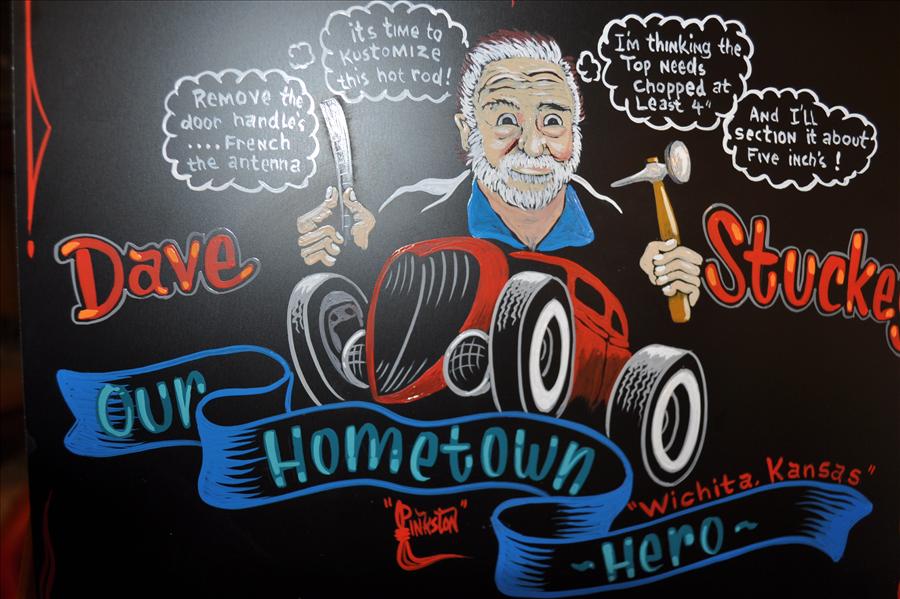 it's time to
KustoMIZE
this hot rod!
Remove the
door handle's
....French
the antenna
I'm thinking the
Top Needs
Chopped at
Least 4"
And I'll
section it about
Five inch's !
Dave
Stuckey
Our
Hometown
"Wichita, Kansas"
~Hero~
"Pinkston"